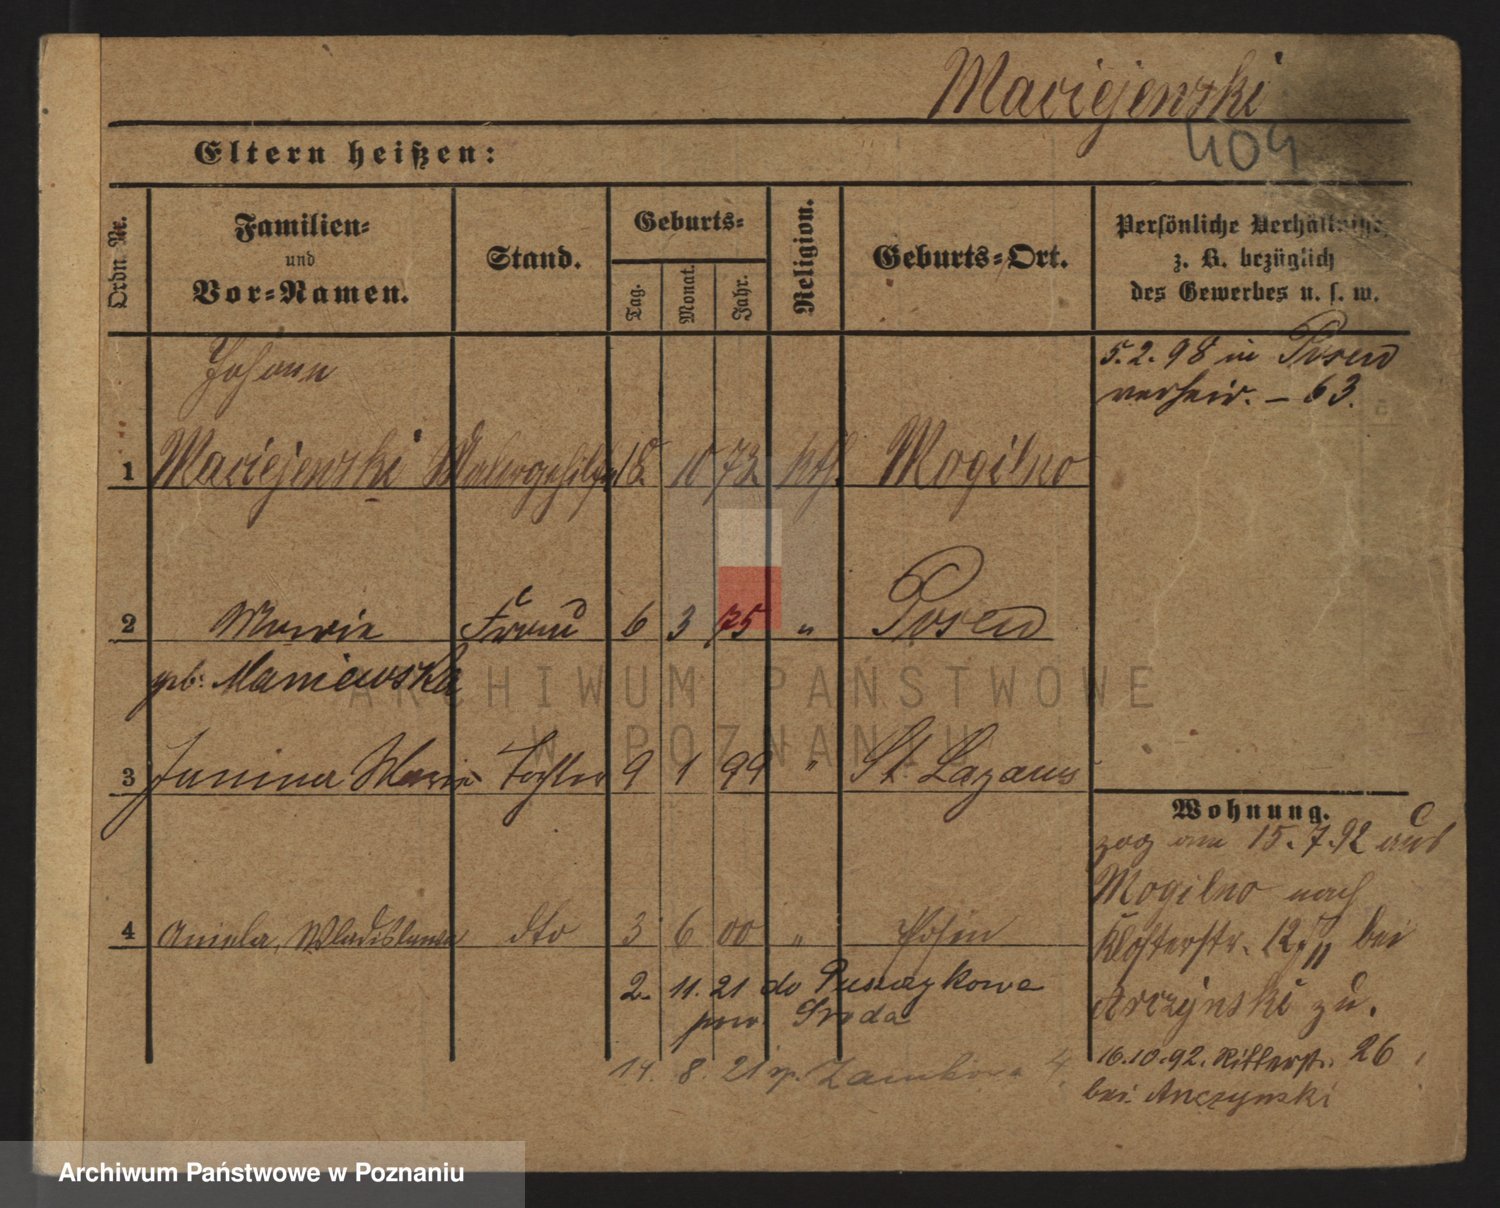 Maciejewski
409
Eltern heißen:
Ordn. Nr.
Familien-
und
Vor-Namen.
Stand.
Geburts-
Tag.
Monat.
Jahr.
Religion.
Geburts-Ort.
Persönliche Verhältnisse,
z. B. bezüglich
des Gewerbes u. s. w.
5. 2. 98 in Posen
verheir. – 63.
Johann
1 Maciejewski Malergehilfe 18. 10 72 kth. Mogilno
2 Marie Frau 6 3 75 " Posen
geb. Maniewska
3 Janina Marie Tochter 9 1 99 " St. Lazarus
4 Aniela, Wladislawa dto 3 6 00 " Posen
2. 11. 21 do Puszczykowa
pow. Sroda
14. 8. 21 Zamkowa 4
Wohnung.
zog am 15. 7. 92 aus
Mogilno nach
Klosterstr. 12, II bei
Arczynski zu.
16.10.92. Ritterstr. 26
bei Arczynski
ARCHIWUM PAŃSTWOWE
W POZNANIU
Archiwum Państwowe w Poznaniu